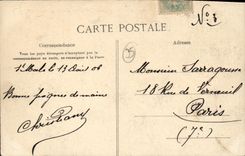 CARTE POSTALE
N° 3
Correspondance
Adresse
Tous les pays étrangers n'acceptent pas la
correspondance au recto, se renseigner à la Poste
St Malo le 13 Août 06
Bonne poignée de mains
Christiany
Monsieur Sarragousse
18 Rue de Verneuil
Paris
(7e)